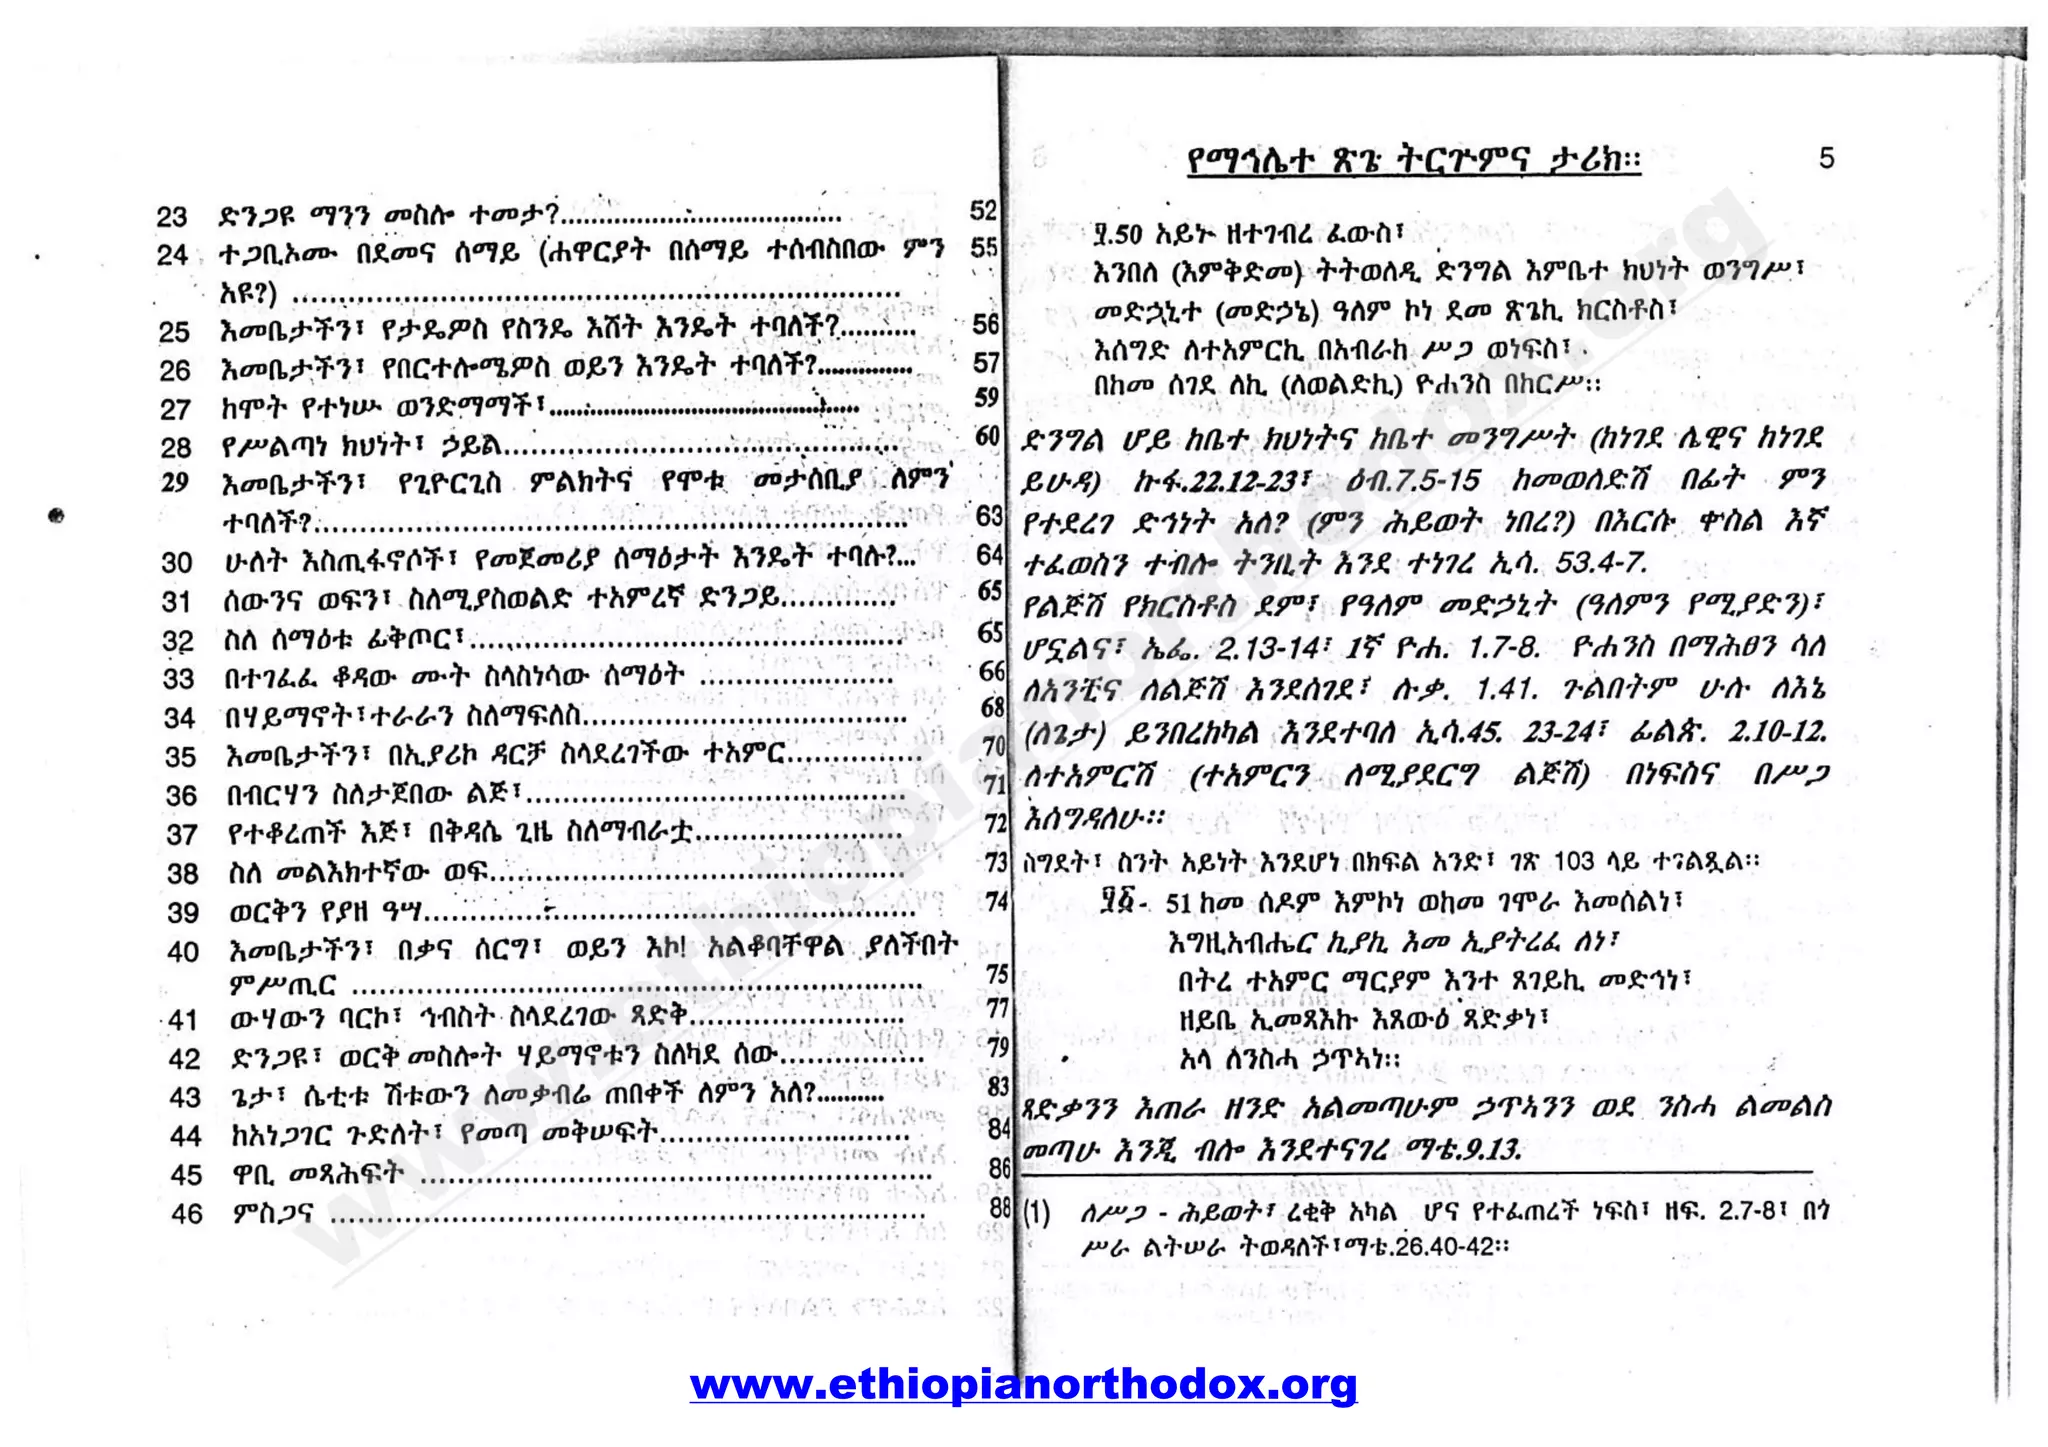 23 ድንጋዩ ማንን መስሎ ተመታ?.................................... 52
24 ተጋቢኦሙ በደመና ሰማይ (ሐዋርያት በሰማይ ተሰብስበው ምን 55
አዩ?) ................................................................
25 እመቤታችን፣ የታዴዎስ የስንዴ እሸት እንዴት ተባለች?........... 56
26 እመቤታችን፣ የበርተሎሜዎስ ወይን እንዴት ተባለች?............... 57
27 ከሞት የተነሡ ወንድማማች፣................................. 59
28 የሥልጣነ ክህነት፣ ኃይል.......................................... 60
29 እመቤታችን፣ የጊዮርጊስ ምልክትና የሞቱ መታሰቢያ ለምን
ተባለች?.............................................................. 63
30 ሁለት እስጢፋኖሶች፣ የመጀመሪያ ሰማዕታት እንዴት ተባሉ?... 64
31 ሰውንና ወፍን፣ ስለሚያስወልድ ተአምረኛ ድንጋይ............. 65
32 ስለ ሰማዕቱ ፊቅጦር፣............................................. 65
33 በተገፈፈ ቆዳው ሙት ስላስነሳው ሰማዕት ..................... 66
34 በሃይማኖት፣ተራራን ስለማፍለስ.................................. 68
35 እመቤታችን፣ በኢያሪኮ ዳርቻ ስላደረገችው ተአምር............... 70
36 በብርሃን ስለታጀበው ልጅ፣........................................ 71
37 የተቆረጠች እጅ፣ በቅዳሴ ጊዜ ስለማብራቷ...................... 72
38 ስለ መልእክተኛው ወፍ............................................ 73
39 ወርቅን የያዘ ዓሣ.................................................. 74
40 እመቤታችን፣ በቃና ሰርግ፣ ወይን እኮ! አልቆባቸዋል ያለችበት
ምሥጢር ........................................................... 75
41 ውሃውን ባርኮ፣ ኅብስት ስላደረገው ጻድቅ....................... 77
42 ድንጋዩ፣ ወርቅ መስሎት ሃይማኖቱን ስለካደ ሰው................ 79
43 ጌታ፣ ሴቲቱ ሽቱውን ለመቃብሬ ጠበቀች ለምን አለ?........... 83
44 ከአነጋገር ጉድለት፣ የመጣ መቅሠፍት.......................... 84
45 ዋቢ መጻሕፍት ..................................................... 86
46 ምስጋና .............................................................. 88
የማኅሌተ ጽጌ ትርጉምና ታሪክ። 5
፶.50 አይኑ ዘተገብረ ፈውስ፣
እንበለ (እምቅድመ) ትትወለዲ ድንግል እምቤተ ክህነት ወንግሥ፣
መድኃኒተ (መድኃኔ) ዓለም ኮነ ደመ ጽጌኪ ክርስቶስ፣
እሰግድ ለተአምርኪ በአብራክ ሥጋ ወነፍስ፣
በከመ ሰገደ ለኪ (ለወልድኪ) ዮሐንስ በከርሥ።
ድንግል ሆይ ከቤተ ክህነትና ከቤተ መንግሥት (ከነገደ ሌዊና ከነገደ
ይሁዳ) ኩፋ.22.12-23፣ ዕብ.7.5-15 ከመወለድሽ በፊት ምን
የተደረገ ድኅነት አለ? (ምን ሕይወት ነበረ?) በእርሱ ቍስል እኛ
ተፈወስን ተብሎ ትንቢት እንደ ተነገረ ኢሳ. 53.4-7.
የልጅሽ የክርስቶስ ደም፣ የዓለም መድኃኒት (ዓለምን የሚያድን)፣
ሆኗልና፣ ኤፌ. 2.13-14፣ 1ኛ ዮሐ. 1.7-8. ዮሐንስ በማሕፀን ሳለ
ለአንቺና ለልጅሽ እንደሰገደ፣ ሉቃ. 1.41. ጉልበትም ሁሉ ለእኔ
(ለጌታ) ይንበረከካል እንደተባለ ኢሳ.45. 23-24፣ ፊልጵ. 2.10-12.
ለተአምርሽ (ተአምርን ለሚያደርግ ልጅሽ) በነፍስና በሥጋ
እሰግዳለሁ።
ስግደት፣ ስንት አይነት እንደሆነ በክፍል አንድ፣ ገጽ 103 ላይ ተገልጿል።
፶፩- 51 ከመ ሰዶም እምኮነ ወከመ ገሞራ እመሰልነ፣
እግዚአብሔር ኪያኪ እመ ኢያትረፈ ለነ፣
በትረ ተአምር ማርያም እንተ ጸገይኪ መድኅነ፣
ዘይቤ ኢመጻእኩ እጸውዕ ጻድቃነ፣
አላ ለንስሓ ኃጥኣነ።
ጻድቃንን እጠራ ዘንድ አልመጣሁም ኃጥኣንን ወደ ንስሓ ልመልስ
መጣሁ እንጂ ብሎ እንደተናገረ ማቴ.9.13.
(1) ለሥጋ - ሕይወት፣ ረቂቅ አካል ሆና የተፈጠረች ነፍስ፣ ዘፍ. 2.7-8፣ በጎ
ሥራ ልትሠራ ትወዳለች፣ማቴ.26.40-42።
www.ethiopianorthodox.org
www.ethiopianorthodox.org